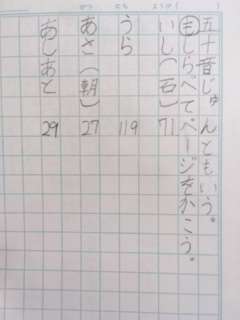 五十音じゅんともいう。
もしらべてページをかこう。
いし(石) 71
うら 119
あさ(朝) 27
あしあと 29